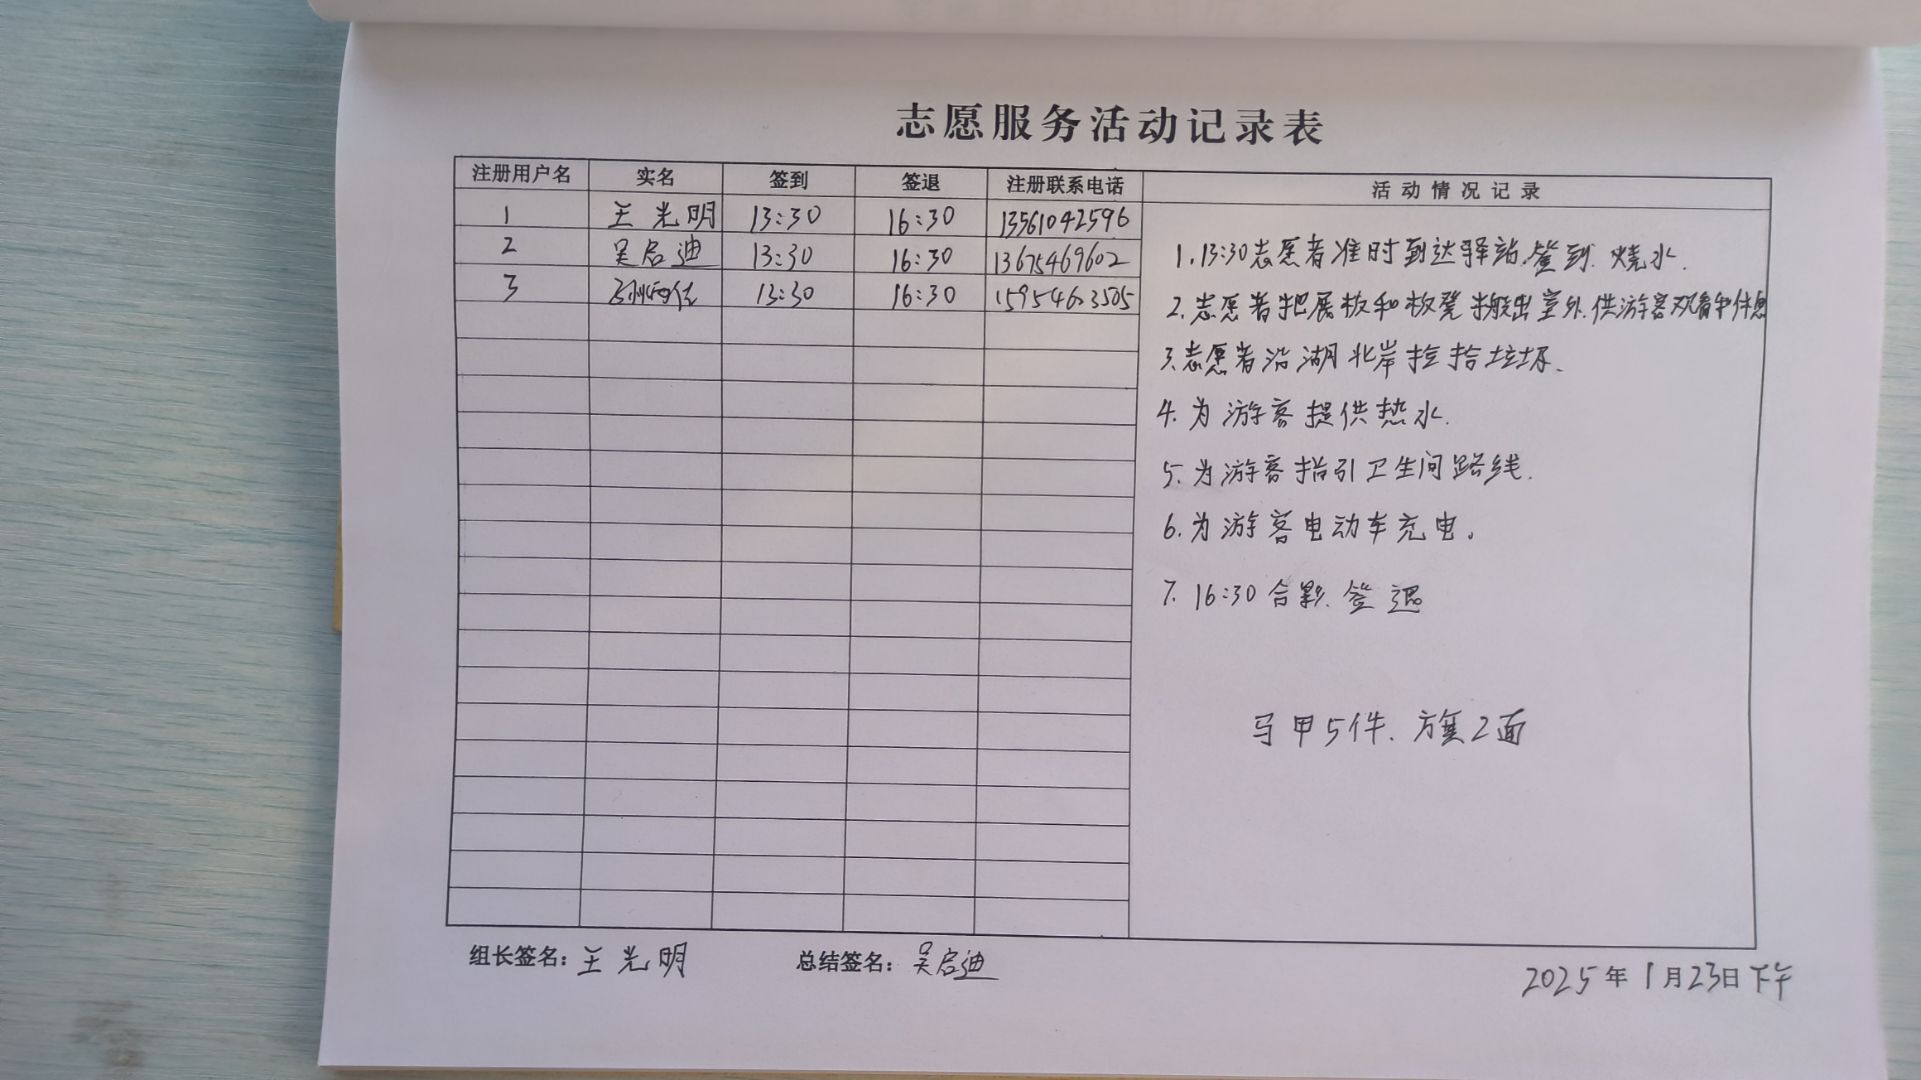 志愿服务活动记录表
注册用户名 实名 签到 签退 注册联系电话 活动情况记录
1 王光明 13:30 16:30 13561042596
2 吴启迪 13:30 16:30 13675469602
3 13:30 16:30 15954603505
1. 13:30志愿者准时到达驿站.签到.烧水.
2.志愿者把展板和板凳搬出室外.供游客观看和休息
3.志愿者沿湖北岸捡拾垃圾.
4.为游客提供热水.
5.为游客指引卫生间路线.
6.为游客电动车充电。
7. 16:30合影.签退
马甲5件.旗2面
组长签名：王光明 总结签名：吴启迪
2025年1月23日下午